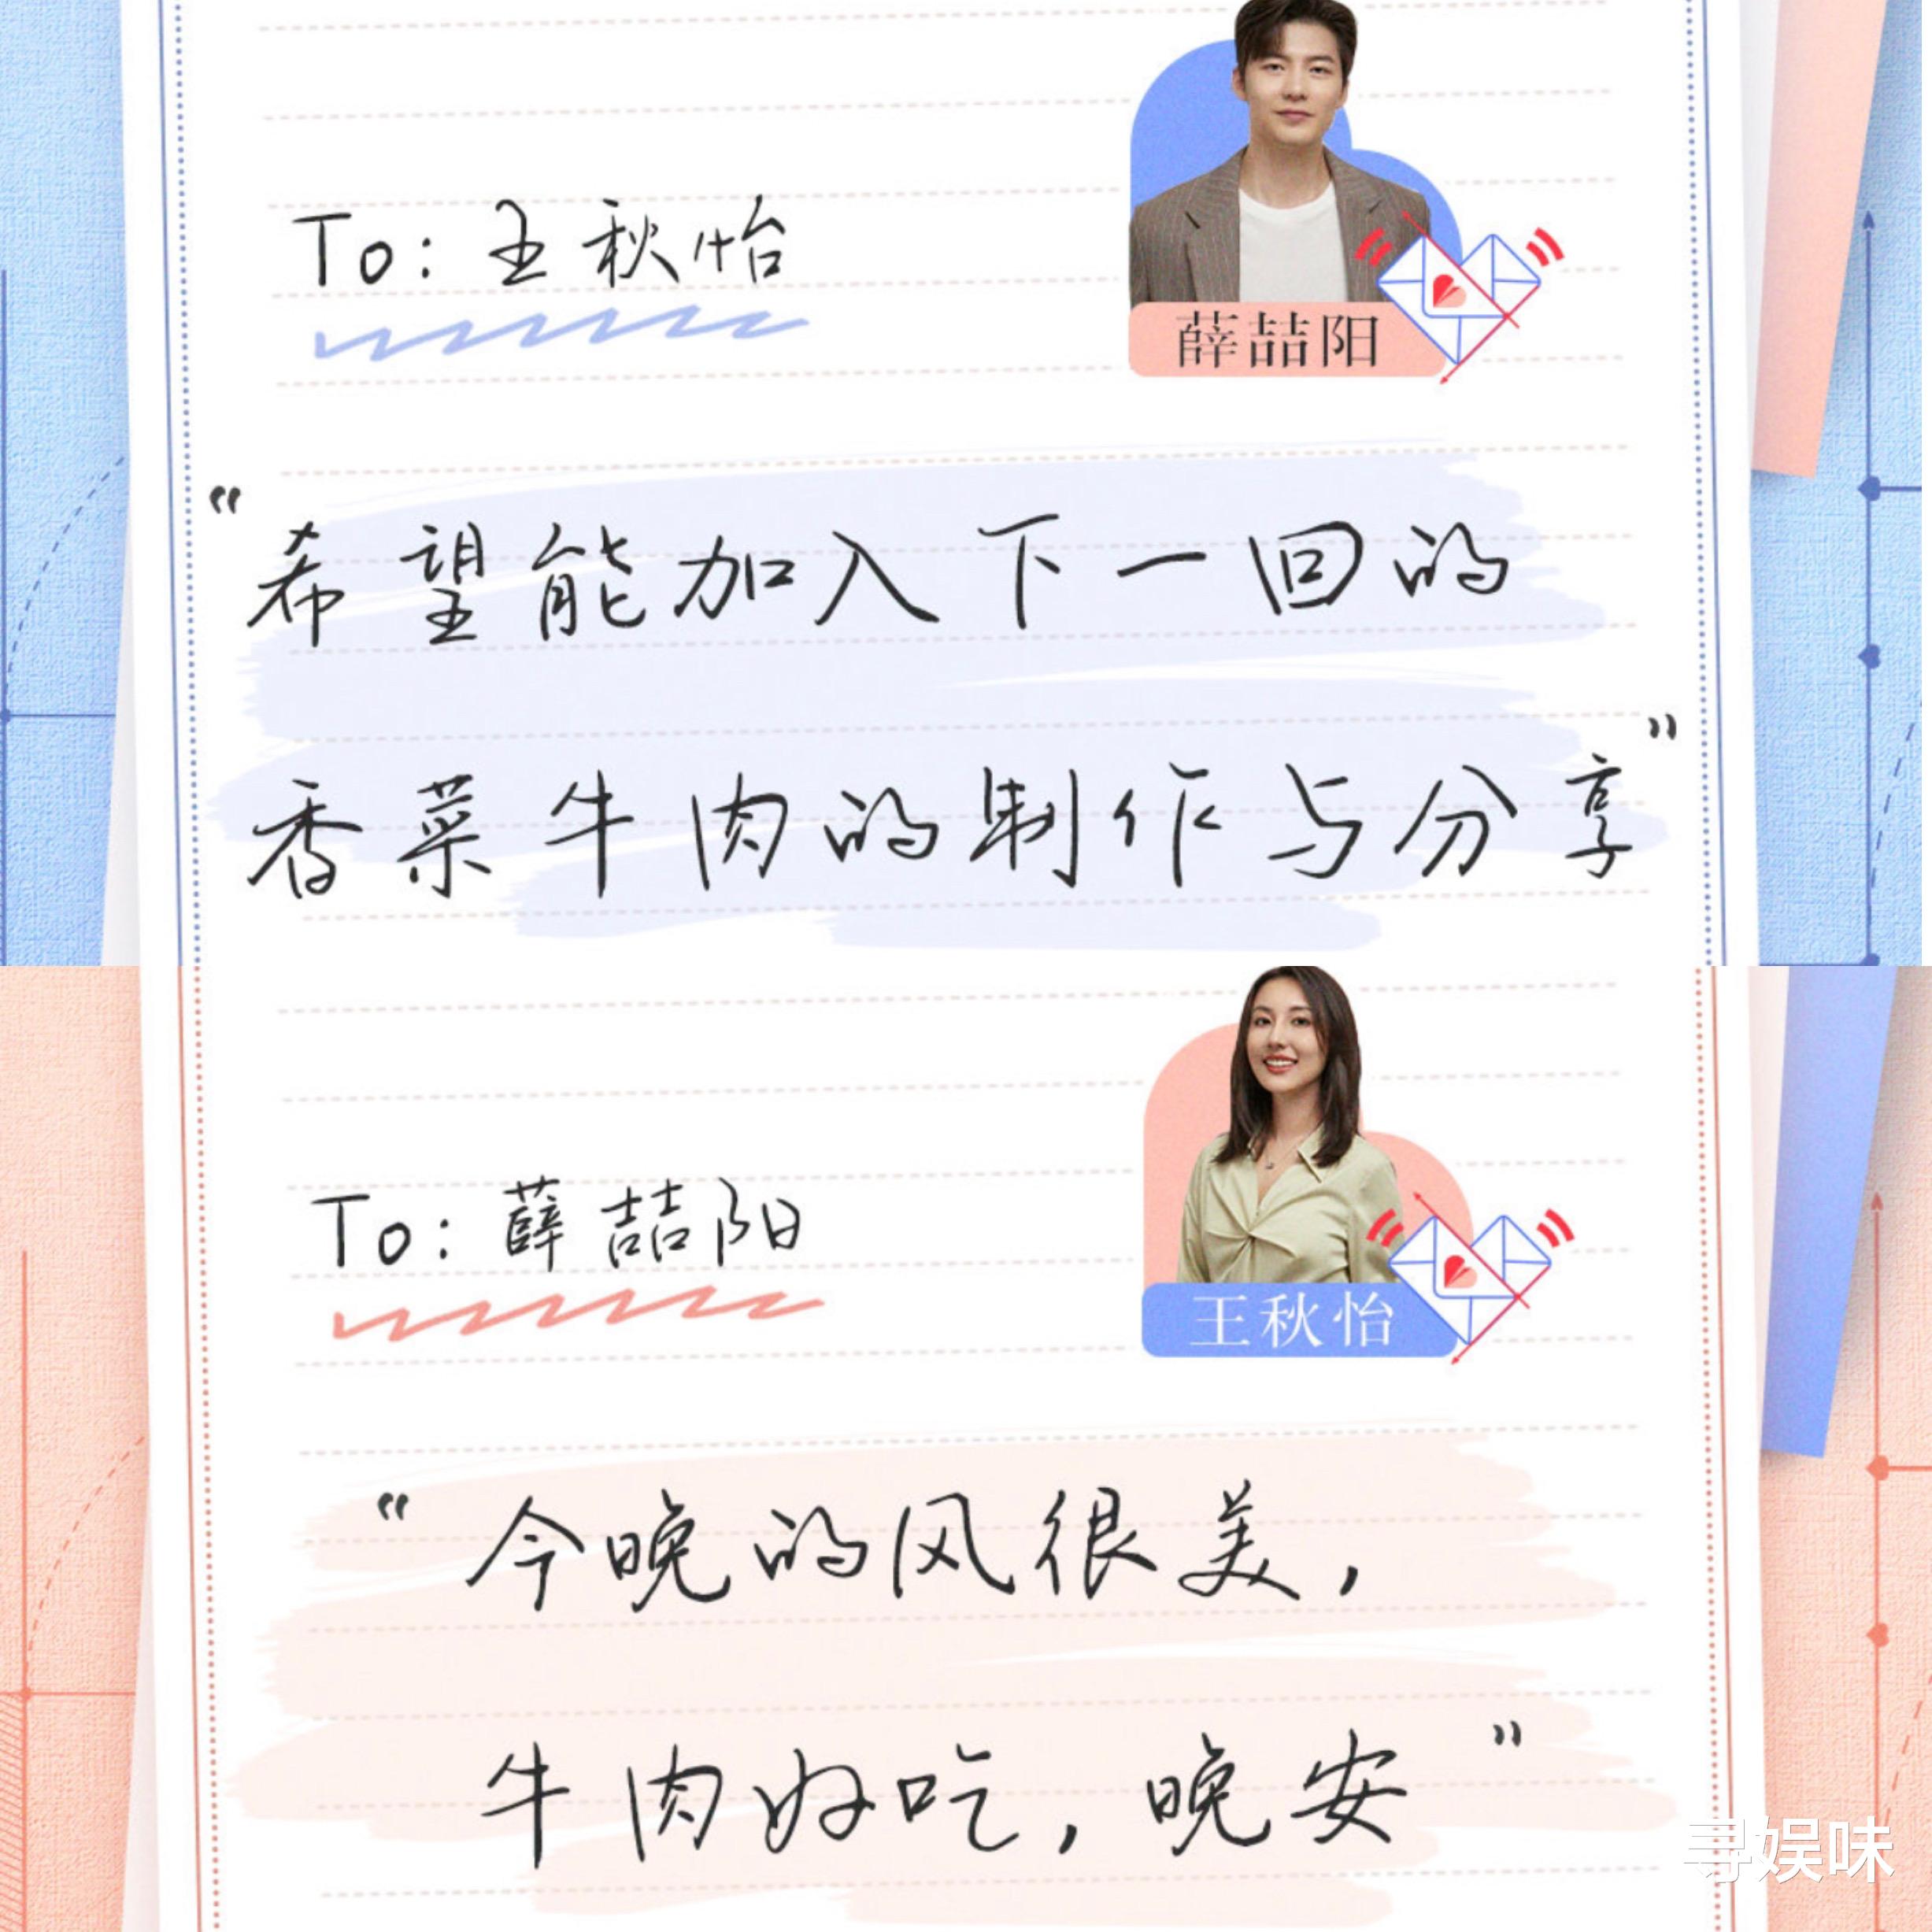 To: 王秋怡
薛喆阳
“希望能加入下一回的
香菜牛肉的制作与分享”
To: 薛喆阳
王秋怡
“今晚的风很美，
牛肉好吃，晚安”
寻娱味